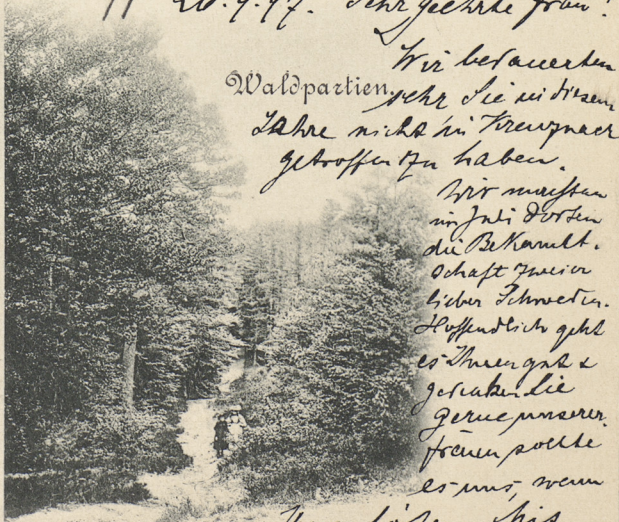 20.9.97. Sehr geehrte Frau!
Waldpartien.
Wir bedauerten
sehr Sie in diesem
Jahre nicht in Kreuznach
getroffen zu haben.
Wir machten
im Juli dorten
die Bekannt-
schaft zweier
lieber Schweden.
Hoffendlich geht
es Ihnen gut &
gedenken Sie
gerne unserer.
freuen sollte
es uns, wenn